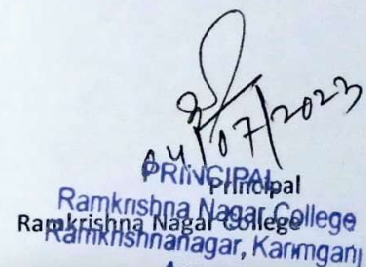 04/07/2023
PRINCIPAL
Principal
Ramkrishna Nagar College
Ramkrishna Nagar College
Ramkrishnanagar, Karimganj